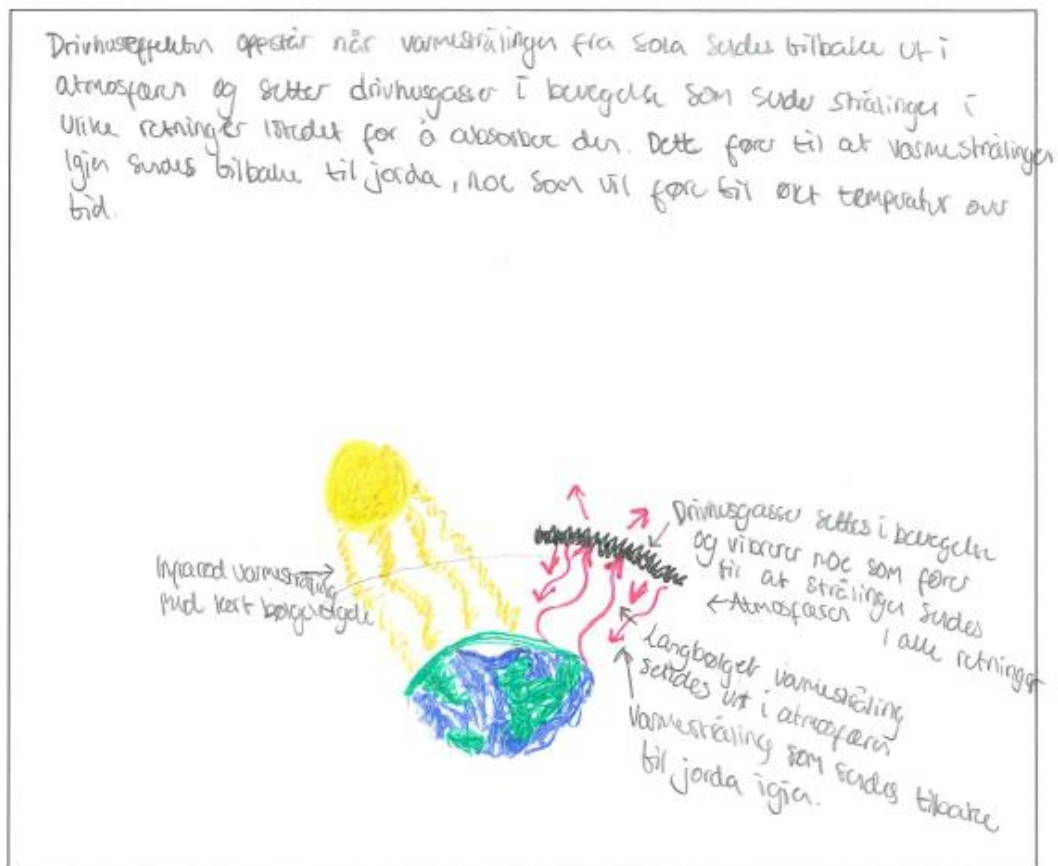 Drivhuseffekten oppstår når varmestrålingen fra sola sendes tilbake ut i
atmosfæren og setter drivhusgasser i bevegelse som sender strålingen i
Ulike retninger istedet for å absorbere den. Dette fører til at varmestrålingen
Igjen sendes tilbake til jorda, noe som vil føre til økt temperatur over
tid.
Infrarød varmestråling
med kort bølgelengde
Drivhusgasser settes i bevegelse
og vibrerer noe som fører
til at strålingen sendes
i alle retninger
←Atmosfæren
Langbølget varmestråling
sendes ut i atmosfæren
Varmestråling som sendes tilbake
til jorda igjen.